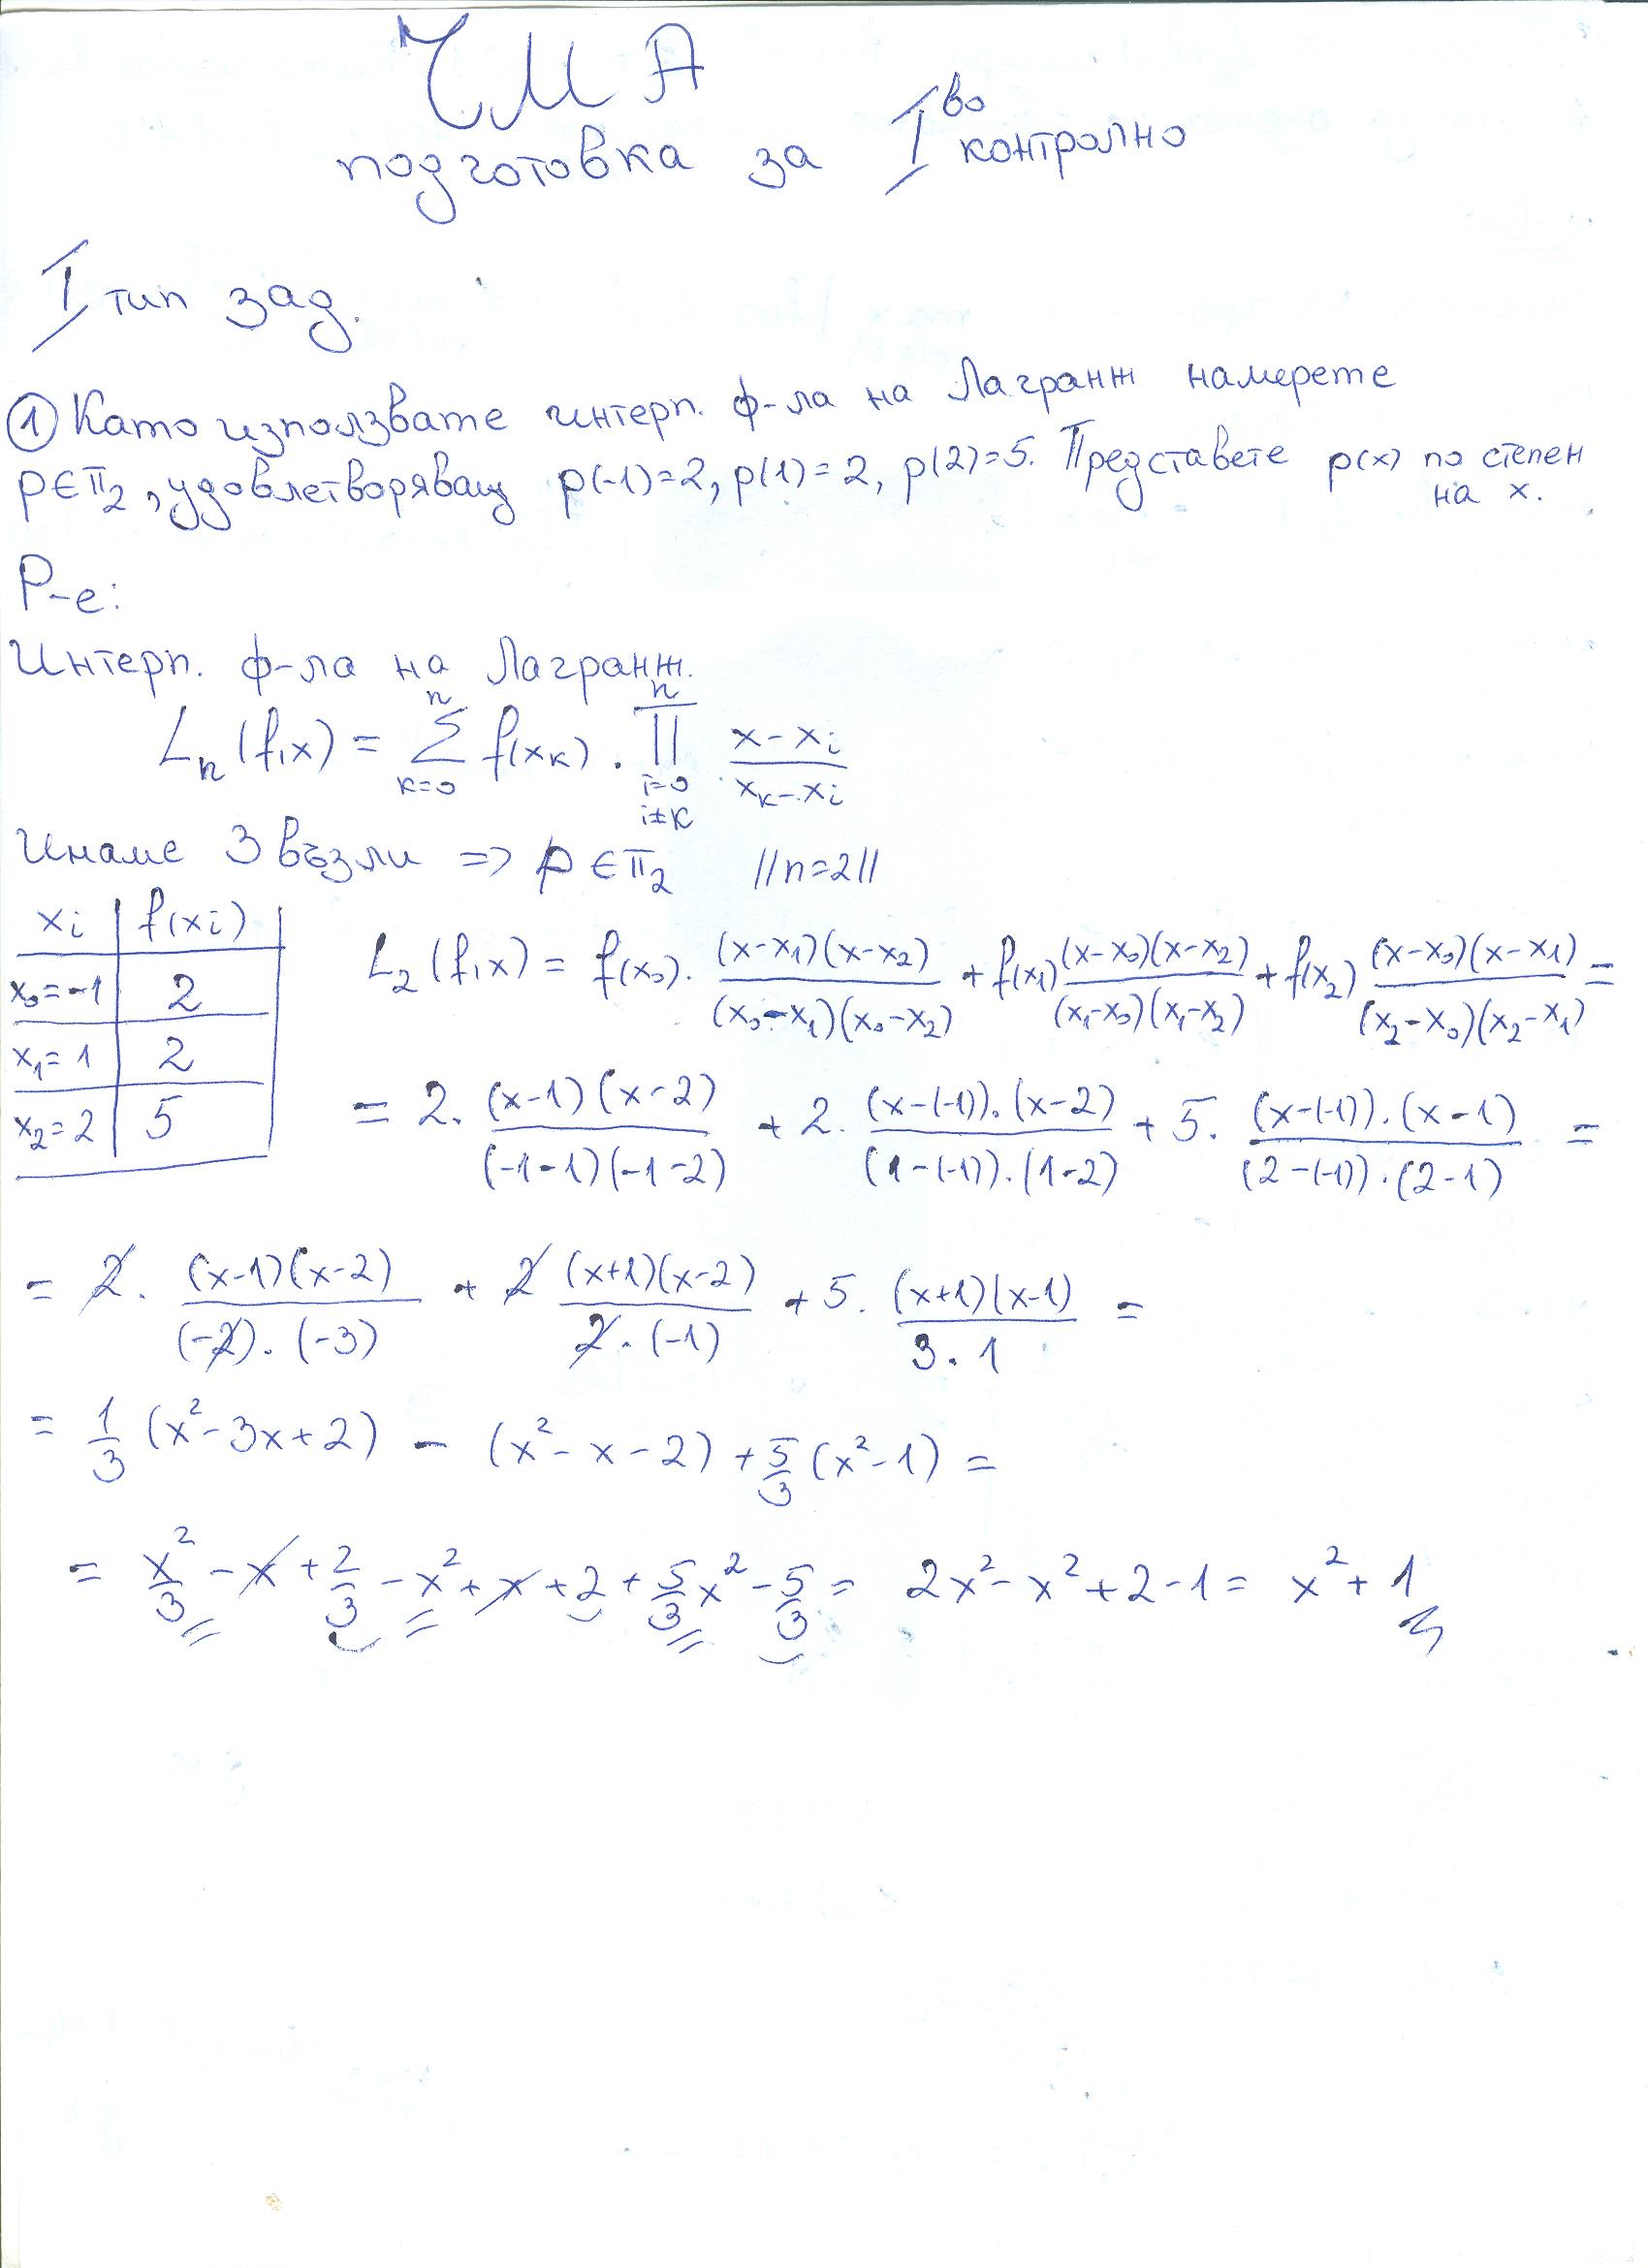 ЧМА
подготовка за I во контролно
I тип зад.
① Като използвате интерп. ф-ла на Лагранж намерете
p∈π₂, удовлетворяващ p(-1)=2, p(1)=2, p(2)=5. Представете p(x) по степен
на x.
Р-е:
Интерп. ф-ла на Лагранж.
Lₙ(f,x) = ∑_{k=0}^{n} f(xₖ) . ∏_{i=0, i≠k}^{n} (x-xᵢ)/(xₖ-xᵢ)
Имаме 3 възли => p∈π₂ //n=2//
xᵢ | f(xᵢ)
x₀=-1 | 2
x₁=1 | 2
x₂=2 | 5
L₂(f,x) = f(x₀). (x-x₁)(x-x₂)/(x₀-x₁)(x₀-x₂) + f(x₁) (x-x₀)(x-x₂)/(x₁-x₀)(x₁-x₂) + f(x₂) (x-x₀)(x-x₁)/(x₂-x₀)(x₂-x₁) =
= 2. (x-1)(x-2)/(-1-1)(-1-2) + 2. (x-(-1)).(x-2)/(1-(-1)).(1-2) + 5. (x-(-1)).(x-1)/(2-(-1)).(2-1) =
= 2. (x-1)(x-2)/(-2).(-3) + 2 (x+1)(x-2)/2.(-1) + 5. (x+1)(x-1)/3.1 =
= 1/3 (x²-3x+2) - (x²-x-2) + 5/3 (x²-1) =
= x²/3 - x + 2/3 - x² + x + 2 + 5/3 x² - 5/3 = 2x²-x²+2-1 = x²+1